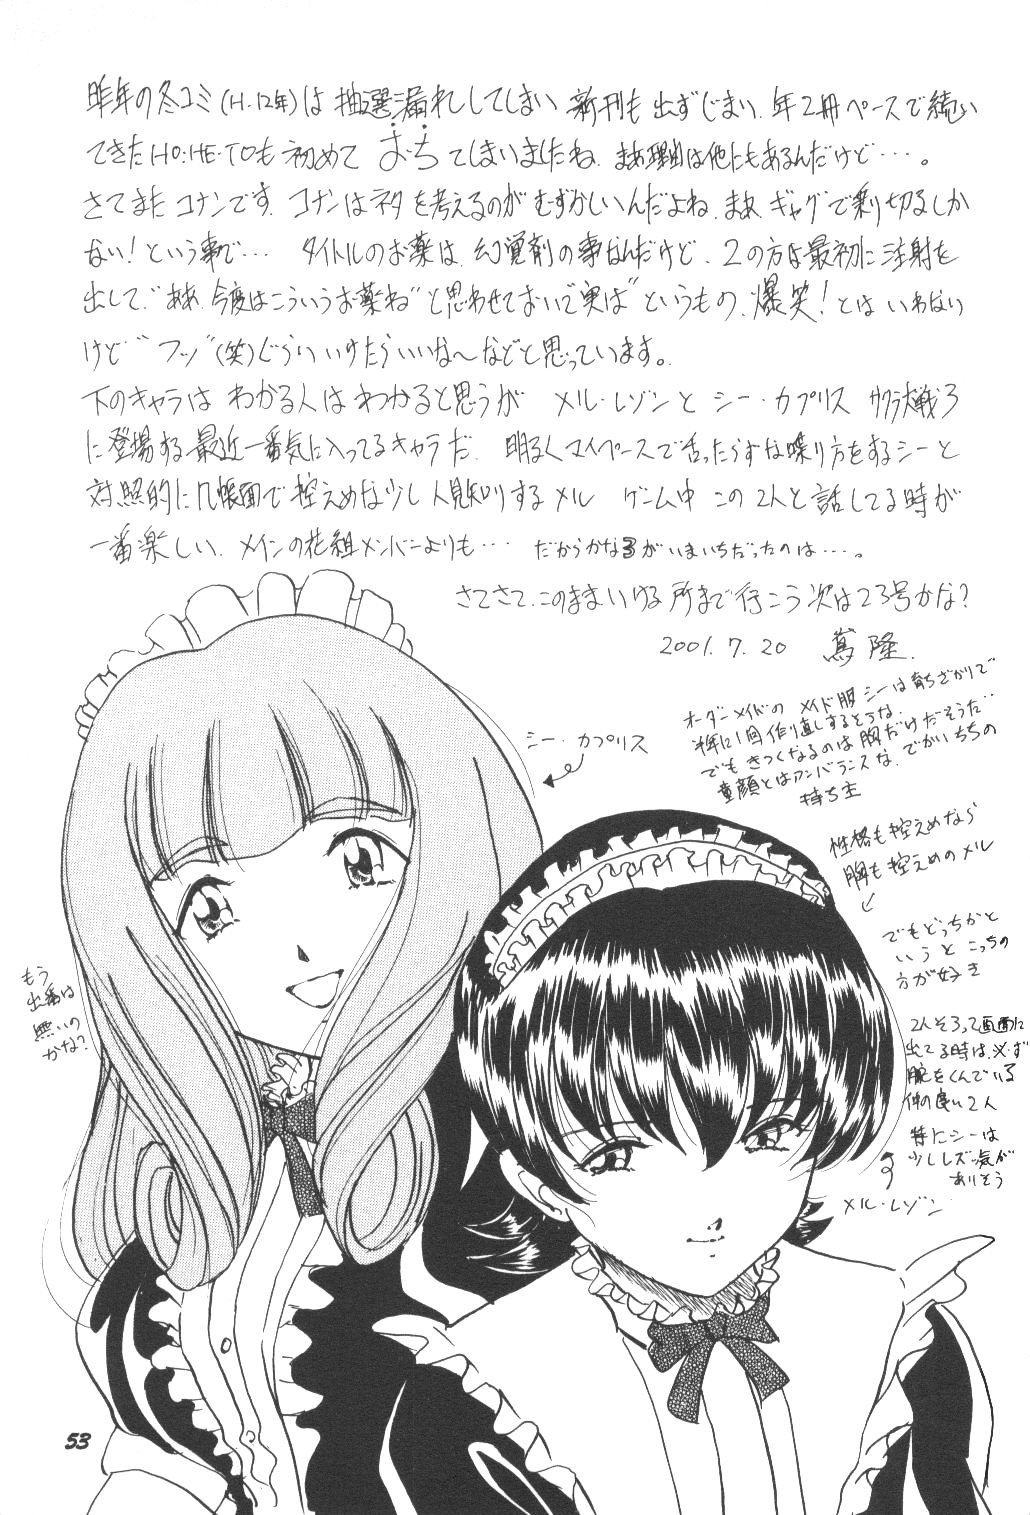 昨年の冬コミ(H.12年)は抽選漏れしてしまい 新刊も出ずじまい、年2冊ペースで続い
てきたHO・HE・TOも初めて おちてしまいましたね、まあ理由は他にもあるんだけど‥‥。
さてまたコナンです、コナンはネタを考えるのがむずかしいんだよね、まあ ギャグで乗り切るしか
ない!という事で… タイトルのお薬は、幻覚剤の事なんだけど、2の方は最初に注射を
出して、“ああ、今度はこういうお薬ね”と思わせておいて“実は”というもの、爆笑!とは いわない
けど “フッ”(笑)ぐらい いけたらいいな〜などと思っています。
下のキャラは わかる人はわかると思うが メル・レゾンと シー・カプリス サクラ大戦3
に登場する最近一番気に入ってるキャラだ、明るくマイペースで舌ったらずな喋り方をするシーと
対照的に几帳面で控えめな少し人見知りするメル ゲーム中 この2人と話してる時が
一番楽しい、メインの花組メンバーよりも… だからかな3がいまいちだったのは‥‥。
さてさて、このままいける所まで行こう次は23号かな?
2001. 7. 20 隆.
シー・カプリス
オーダーメイドの メイド服 シーは育ちざかりで
半年に1回作り直しするとうな、
でも きつくなるのは胸だけだそうだ‥
童顔とはアンバランスな、でかいちちの
持ち主
性格も控えめなら
胸も控えめのメル
でもどっちかと
いうと こっちの
方が好き
2人そろって画面に
出てる時は、必ず
腕をくんでいる
仲の良い2人
特にシーは
少しレズッ気が
ありそう
メル・レゾン
もう
出番は
無いの
かな?
53